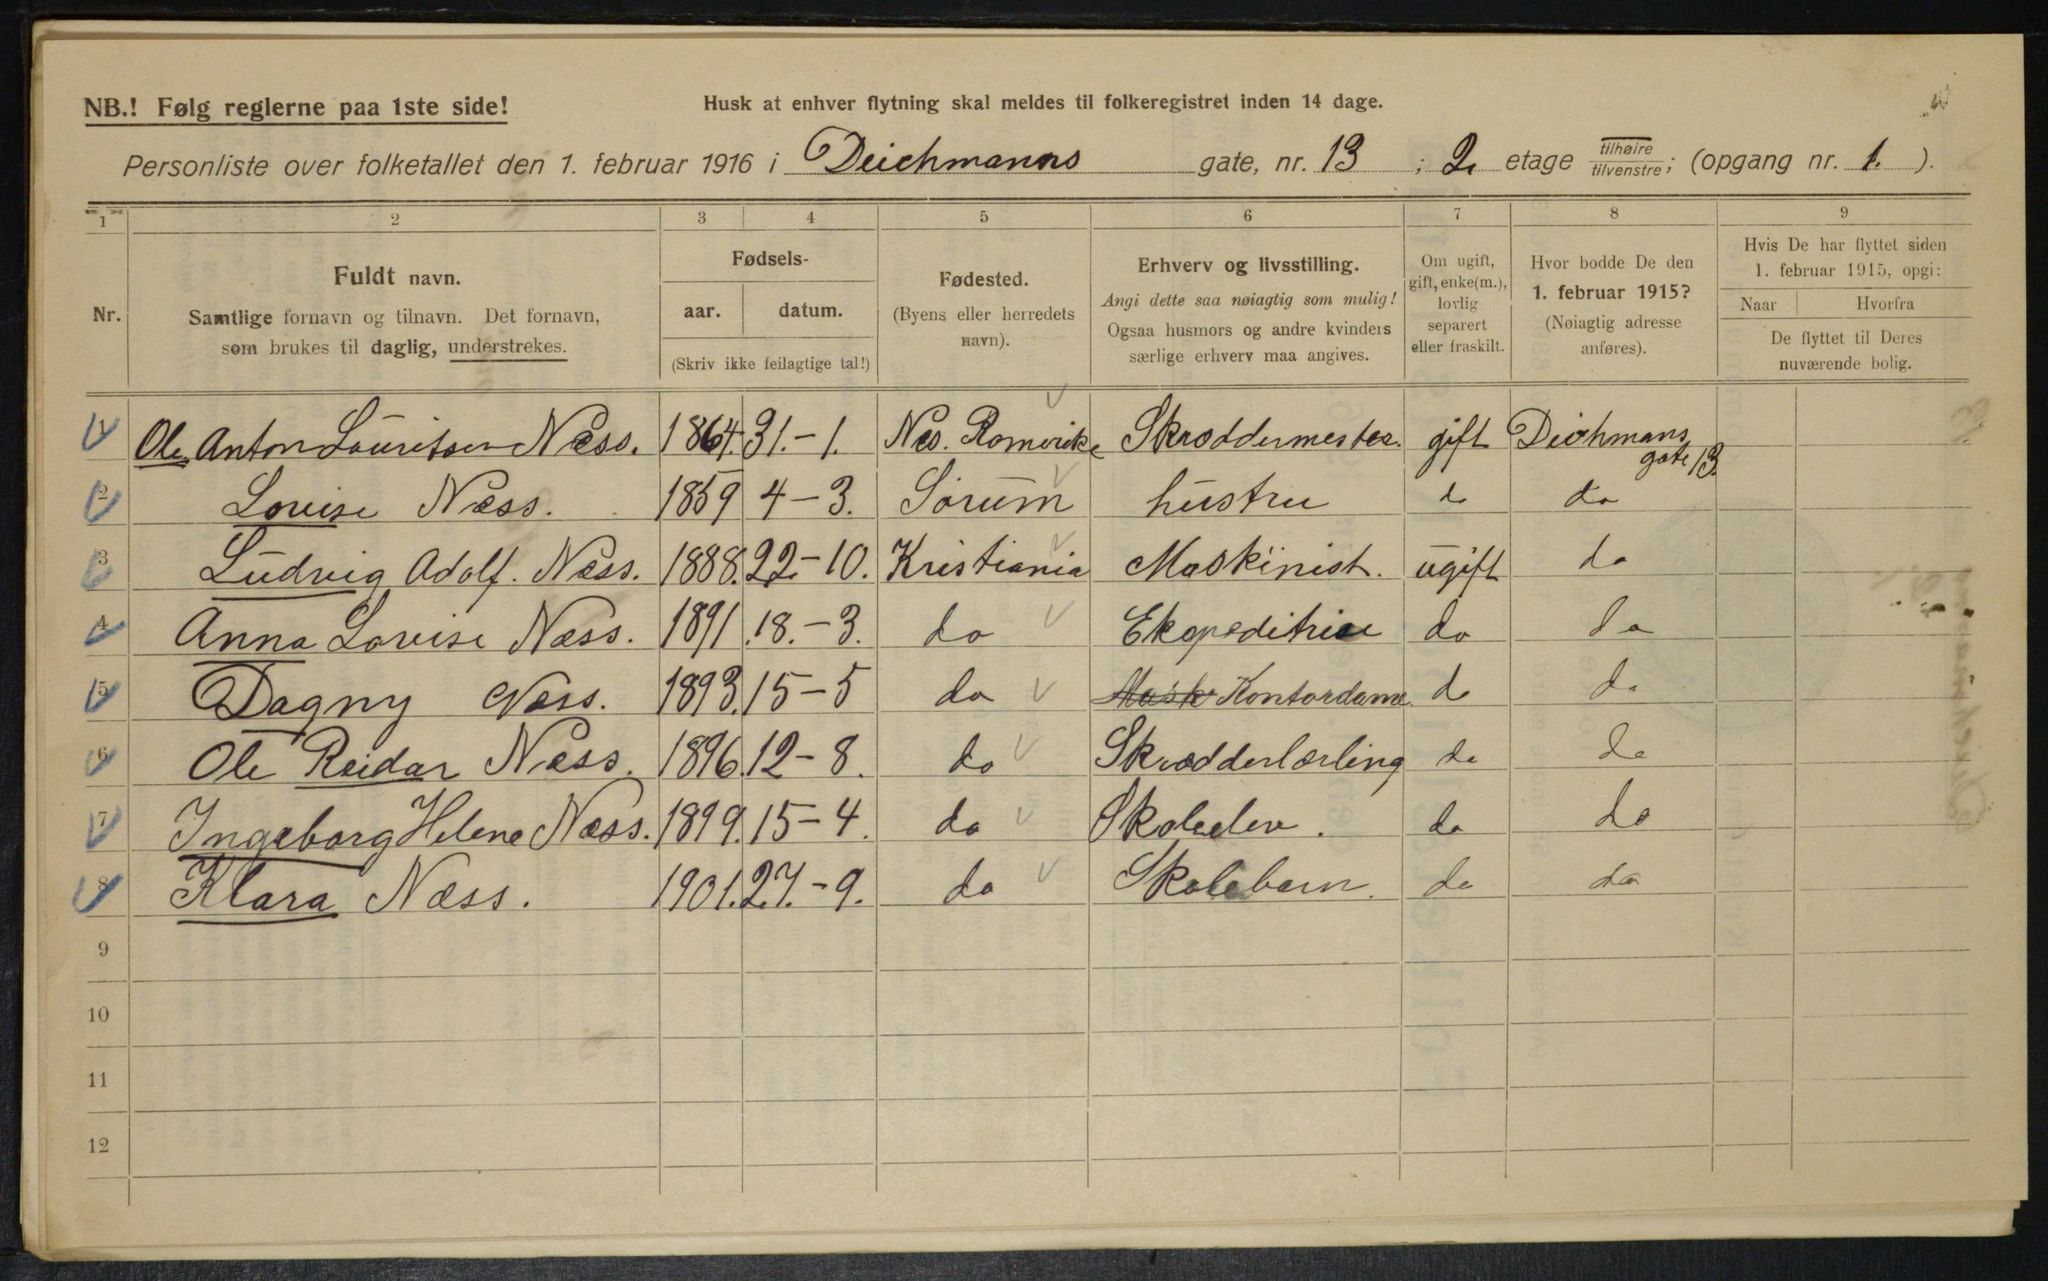 NB.! Følg reglerne paa 1ste side!
Husk at enhver flytning skal meldes til folkeregistret inden 14 dage.
Personliste over folketallet den 1. februar 1916 i Deichmanns gate, nr. 13 ; 2. etage tilhøire/tilvenstre; (opgang nr. 1. ).
1 2 3 4 5 6 7 8 9
Nr.
Fuldt navn.
Samtlige fornavn og tilnavn. Det fornavn,
som brukes til daglig, understrekes.
Fødsels-
aar. datum.
(Skriv ikke feilagtige tal!)
Fødested.
(Byens eller herredets
navn).
Erhverv og livsstilling.
Angi dette saa nøiagtig som mulig!
Ogsaa husmors og andre kvinders
særlige erhverv maa angives.
Om ugift,
gift, enke(m.),
lovlig
separert
eller fraskilt.
Hvor bodde De den
1. februar 1915?
(Nøiagtig adresse
anføres).
Hvis De har flyttet siden
1. februar 1915, opgi:
Naar Hvorfra
De flyttet til Deres
nuværende bolig.
1 Ole Anton Lauritsen Næss. 1864. 31.-1. Nes. Romerike Skræddermester. gift Dichmans gate 13.
2 Lovise Næss. 1859 4-3. Sørum hustru do do
3 Ludvig Adolf. Næss. 1888. 22-10. Kristiania Maskinist. ugift do
4 Anna Lovise Næss. 1891 18.-3. do Ekspeditrise do do
5 Dagny Næss. 1893. 15-5 do Mask Kontordame. do do
6 Ole Reidar Næss. 1896. 12-8. do Skrædderlærling do do
7 Ingeborg Helene Næss. 1899. 15-4. do Skoleelev. do do
8 Klara Næss. 1901. 27.-9. do Skolebarn. do do
9
10
11
12